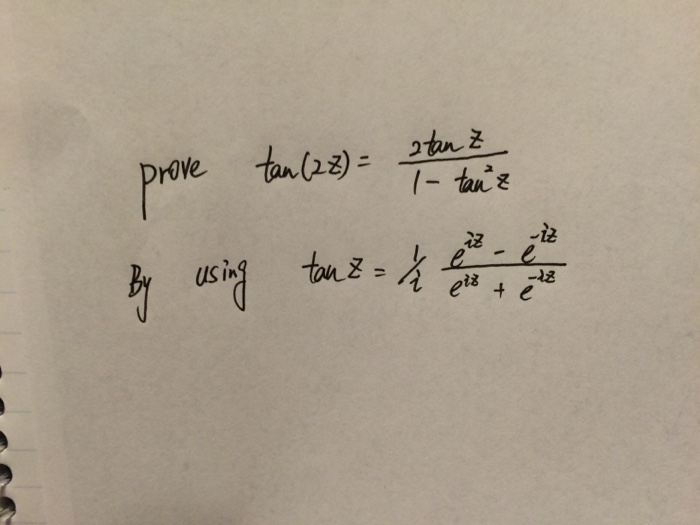 prove tan(2z) = \frac{2 tan z}{1 - tan^2 z}
By using tan z = 1/i \frac{e^{iz} - e^{-iz}}{e^{iz} + e^{-iz}}